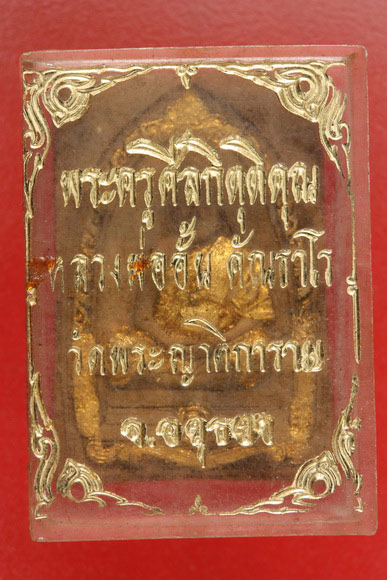 พระครูศีลกิตติคุณ
หลวงพ่ออั้น คันธาโร
วัดพระญาติการาม
จ.อยุธยา